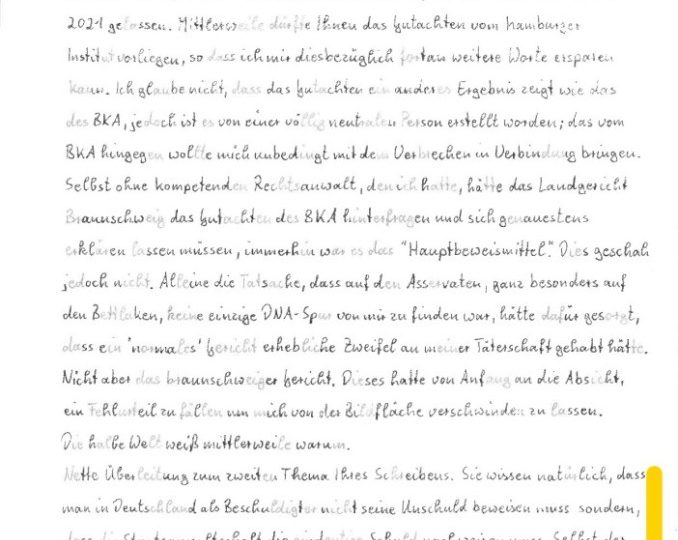 2021 gelassen. Mittlerweile dürfte Ihnen das Gutachten vom Hamburger
Institut vorliegen, so dass ich mir diesbezüglich fortan weitere Worte ersparen
kann. Ich glaube nicht, dass das Gutachten ein anderes Ergebnis zeigt wie das
des BKA, jedoch ist es von einer völlig neutralen Person erstellt worden; das vom
BKA hingegen wollte mich unbedingt mit dem Verbrechen in Verbindung bringen.
Selbst ohne kompetenden Rechtsanwalt, den ich hatte, hätte das Landgericht
Braunschweig das Gutachten des BKA hinterfragen und sich genauestens
erklären lassen müssen, immerhin war es das "Hauptbeweismittel". Dies geschah
jedoch nicht. Alleine die Tatsache, dass auf den Asservaten, ganz besonders auf
den Bettlaken, keine einzige DNA-Spur von mir zu finden war, hätte dafür gesorgt,
dass ein 'normales' Gericht erhebliche Zweifel an meiner Täterschaft gehabt hätte.
Nicht aber das braunschweiger Gericht. Dieses hatte von Anfang an die Absicht,
ein Fehlurteil zu fällen um mich von der Bildfläche verschwinden zu lassen.
Die halbe Welt weiß mittlerweile warum.
Nette Überleitung zum zweiten Thema Ihres Schreibens. Sie wissen natürlich, dass
man in Deutschland als Beschuldigter nicht seine Unschuld beweisen muss sondern,
dass die Staatsanwaltschaft die eindeutige Schuld nachweisen muss. Selbst der